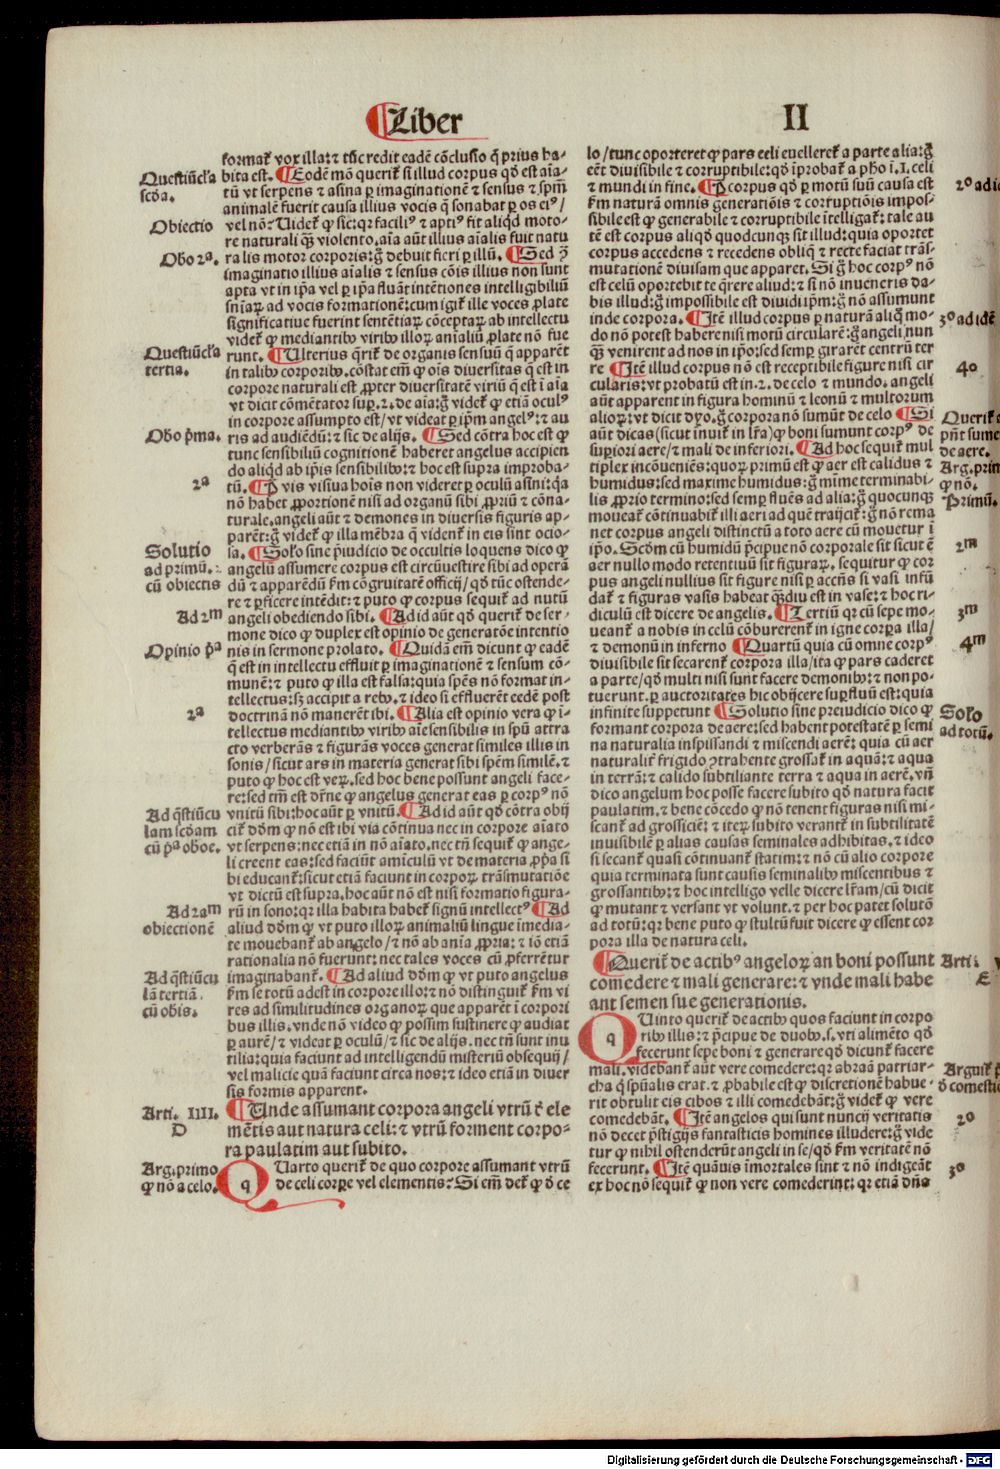 Liber
II
format᷑ vox illa: ⁊ tūc redit eadē cōclusio q̄ prius ha-
bita est. Eodē mō querit᷑ si illud corpus qd̄ est aīa-
tū vt serpens ⁊ asina ꝑ imaginationē ⁊ sensus ⁊ spm̄
animalē fuerit causa illius vocis q̄ sonabat ꝑ os eiꝰ/
vel nō: Uidet᷑ ꝙ sic: qꝛ faciliꝰ ⁊ aptiꝰ fit aliqd moto-
re naturali qꝫ violento. aīa aūt illius aīalis fuit natu
ralis motor corporis: g̊ debuit fieri ꝑ illū. Sed ꝯ
imaginatio illius aīalis ⁊ sensus cōis illius non sunt
apta vt in ip̄a vel ꝑ ip̄a fluāt intētiones intelligibiliū
sniaꝝ ad vocis formationē: cum igit᷑ ille voces ꝓlate
significatiue fuerint sentētiaꝝ cōceptaꝝ ab intellectu
videt᷑ ꝙ mediantibꝰ viribꝰ illoꝝ aīaliū ꝓlate nō fue
runt. Ulterius q̄rit᷑ de organis sensuū q̄ apparēt
in talibꝰ corporibꝰ. cōstat em̄ ꝙ ois diuersitas q̄ est in
corpore naturali est ꝓpter diuersitatē viriū q̄ est ī aīa
vt dicit cōmētator suꝑ .2. de aīa: g̊ videt᷑ ꝙ etiā oculꝰ
in corpore assumpto est/ vt videat ꝑ ipm̄ angelꝰ: ⁊ au
ris ad audiēdū: ⁊ sic de alijs. Sed cōtra hoc est ꝙ
tunc sensibiliū cognitionē haberet angelus accipien
do aliqd ab ip̄is sensibilibꝰ: ⁊ hoc est supra improba-
tū. P̄ vis visiua hoīs non videret ꝑ oculū asini: qꝛ
nō habet ꝓportionē nisi ad organū sibi ꝓpriū ⁊ cōna-
turale. angeli aūt ⁊ demones in diuersis figuris ap-
parēt: g̊ videt᷑ ꝙ illa mēbra q̄ vident᷑ in eis sint ocio-
sa. Solo sine p̄iudicio de occultis loquens dico ꝙ
angelū assumere corpus est circūuestire sibi ad operā
dū ⁊ apparēdū ẜm cōgruitatē officij/ qd̄ tūc ostende-
re ⁊ ꝑficere intēdit: ⁊ puto ꝙ corpus sequit᷑ ad nutū
angeli obediendo sibi. Ad id aūt qd̄ querit᷑ de ser-
mone dico ꝙ duplex est opinio de generatōe intentio
nis in sermone prolato. Quidā em̄ dicunt ꝙ eadē
q̄ est in intellectu effluit ꝑ imaginationē ⁊ sensum cō-
munē: ⁊ puto ꝙ illa est falsa: quia spēs nō format in-
tellectus: sꝫ accipit a rebꝰ. ⁊ ideo si effluerēt eedē post
doctrinā nō manerēt ibi. Alia est opinio vera ꝙ i-
tellectus mediantibꝰ viribꝰ aīe sensibilis in spū attra
cto verberās ⁊ figurās voces generat similes illis in
sonis/ sicut ars in materia generat sibi spēm similē. ⁊
puto ꝙ hoc est veꝝ. sed hoc bene possunt angeli face-
re: sed tm̄ est dr̄ne ꝙ angelus generat eas ꝑ corpꝰ nō
vnitū sibi: hoc aūt ꝑ vnitū. Ad id aūt qd̄ cōtra obij
cit᷑ dōm ꝙ nō est ibi via cōtinua nec in corpore aīato
vt serpens: nec etiā in nō aīato. nec tn̄ sequit᷑ ꝙ ange-
li creent eas: sed faciūt amiculū vt de materia ꝓpa si
bi educant᷑: sicut etiā faciunt in corpoꝝ trāsmutatiōe
vt dictū est supra. hoc aūt nō est nisi formatio figura-
rū in sono: qꝛ illa habita habet᷑ signū intellectꝰ. Ad
aliud dōm ꝙ vt puto illoꝝ animaliū lingue imedia-
te mouebant᷑ ab angelo/ ⁊ nō ab anīa ꝓpria: ⁊ iō etiā
rationalia nō fuerunt: nec tales voces cū ꝓferrētur
imaginabant᷑. Ad aliud dōm ꝙ vt puto angelus
ẜm se totū adest in corpore illo: ⁊ nō distinguit᷑ ẜm vi
res ad similitudines organoꝝ que apparēt ī corpori
bus illis. vnde nō video ꝙ possim sustinere ꝙ audiat
ꝑ aurē/ ⁊ videat ꝑ oculū/ ⁊ sic de alijs. nec tn̄ sunt inu
tilia: quia faciunt ad intelligendū misteriū obsequij/
vel malicie quā faciunt circa nos: ⁊ ideo etiā in diuer
sis formis apparent.
Unde assumant corpora angeli vtrū ē ele
mētis aut natura celi: ⁊ vtrū forment corpo-
ra paulatim aut subito.
Quarto querit᷑ de quo corpore assumant vtrū
de celi corꝑe vel elementis: Si em̄ det᷑ ꝙ d̄ ce
Questiūcl'a
scd̄a.
Obiectio
Obo 2ª.
Questiūcl'a
tertia.
Obo pͥma.
2ª
Solutio
ad primū.
cū obiectis
Ad 2m
Opinio pͥa
2ª
Ad q̄stiūcu
lam scd̄am
cū pͥa oboe.
Ad 2am
obiectionē
Ad q̄stiūcu
lā tertiā.
cū obis.
Arti. IIII.
D
Arg. primo
ꝙ nō a celo.
lo/ tunc oporteret ꝙ pars celi euelleret᷑ a parte alia: g̊
eēt diuisibile ⁊ corruptibile: qd̄ īprobat᷑ a pho ī.1. celi
⁊ mundi in fine. P̄ corpus qd̄ ꝑ motū suū causa est
ẜm naturā omnis generatiōis ⁊ corruptiōis impos-
sibile est ꝙ generabile ⁊ corruptibile ītelligat᷑: tale au
tē est corpus aliqd̄ quodcunqꝫ sit illud: quia oportet
corpus accedens ⁊ recedens obliq̄ ⁊ recte faciat trās-
mutationē diuisam que apparet. Si g̊ hoc corpꝰ nō
est celū oportebit te q̄rere aliud: ⁊ si nō inueneris da-
bis illud: g̊ impossibile est diuidi ipm̄: g̊ nō assumunt
inde corpora. Itē illud corpus ꝑ naturā aliq̄ mo-
do nō potest habere nisi motū circularē: g̊ angeli nun
qꝫ venirent ad nos in ip̄o: sed semꝑ girarēt centrū ter
re. Itē illud corpus nō est receptibile figure nisi cir
cularis: vt probatū est in .2. de celo ⁊ mundo. angeli
aūt apparent in figura hominū ⁊ leonū ⁊ multorum
alioꝝ: vt dicit dyo. g̊ corpora nō sumūt de celo. Si
aūt dicas (sicut īnuit᷑ in lr̄a) ꝙ boni sumunt corpꝰ de
suꝑiori aere/ ⁊ mali de inferiori. Ad hoc sequit᷑ mul
tiplex incōueniēs: quoꝝ primū est ꝙ aer est calidus ⁊
humidus: sed maxime humidus: g̊ mime terminabi-
lis ꝓprio termino: sed semꝑ fluēs ad alia: g̊ quocunqꝫ
moueat᷑ cōtinuabit᷑ illi aeri ad quē traijcit᷑: g̊ nō rema
net corpus angeli distinctū a toto aere cū mouetur ī
ip̄o. Scd̄m cū humidū p̄cipue nō corporale sit sicut ē
aer nullo modo retentiuū sit figuraꝝ. sequitur ꝙ cor
pus angeli nullius sit figure nisi ꝑ accn̄s si vasi infū
dat᷑ ⁊ figuras vasis habeat qꝫdiu est in vase: ⁊ hoc ri-
diculū est dicere de angelis. Tertiū qꝛ cū sepe mo-
ueant᷑ a nobis in celū cōburerent᷑ in igne corꝑa illa/
⁊ demonū in inferno. Quartū quia cū omne corpꝰ
diuisibile sit secarent᷑ corpora illa/ ita ꝙ pars caderet
a parte/ qd̄ multi nisi sunt facere demonibꝰ: ⁊ non po-
tuerunt. ꝑ auctoritates hic obijcere suꝑfluū est: quia
infinite suppetunt. Solutio sine preiudicio dico ꝙ
formant corpora de aere: sed habent potestatē ꝑ semi
na naturalia inspissandi ⁊ miscendi aerē: quia cū aer
naturalit᷑ frigido ꝯtrahente grossat᷑ in aquā: ⁊ aqua
in terrā: ⁊ calido subtiliante terra ⁊ aqua in aerē. vn̄
dico angelum hoc posse facere subito qd̄ natura facit
paulatim. ⁊ bene cōcedo ꝙ nō tenent figuras nisi mi-
scant᷑ ad grossiciē: ⁊ iteꝝ subito verant᷑ in subtilitatē
inuisibilē ꝑ alias causas seminales adhibitas. ⁊ ideo
si secant᷑ quasi cōtinuant᷑ statim: ⁊ nō cū alio corpore
quia terminata sunt causis seminalibꝰ miscentibus ⁊
grossantibꝰ: ⁊ hoc intelligo velle dicere lr̄am/ cū dicit
ꝙ mutant ⁊ versant vt volunt. ⁊ per hoc patet solutō
ad totū: qꝛ bene puto ꝙ stultū fuit dicere ꝙ essent cor
pora illa de natura celi.
Querit᷑ de actibꝰ angeloꝝ an boni possunt
comedere ⁊ mali generare: ⁊ vnde mali habe
ant semen sue generationis.
Quinto querit᷑ de actibꝰ quos faciunt in corpo
ribꝰ illis: ⁊ p̄cipue de duobꝰ .s. vti alimēto qd̄
fecerunt sepe boni ⁊ generare qd̄ dicunt᷑ facere
mali. videbant᷑ aūt vere comedere: qꝛ abraā patriar-
cha q̄ spūalis erat. ⁊ ꝓbabile est ꝙ discretionē habue-
rit obtulit eis cibos ⁊ illi comedebāt: g̊ videt᷑ ꝙ vere
comedebāt. Itē angelos qui sunt nuncij veritatis
nō decet p̄stigijs fantasticis homines illudere: g̊ vide
tur ꝙ nihil ostenderūt angeli in se/ qd̄ ẜm veritatē nō
fecerunt. Itē quāuis īmortales sint ⁊ nō indigeāt
ex hoc nō sequit᷑ ꝙ non vere comederint: qꝛ etiā dn̄s
2º ad id
3º ad idē
4º
Querit᷑
pn̄t sume
de aere.
Arg. prim
ꝙ nō.
Primū.
2m
3m
4m
Solo
ad totū.
Arti.
E
Arguit᷑
comesti
2º
3º
Digitalisierung gefördert durch die Deutsche Forschungsgemeinschaft - DFG